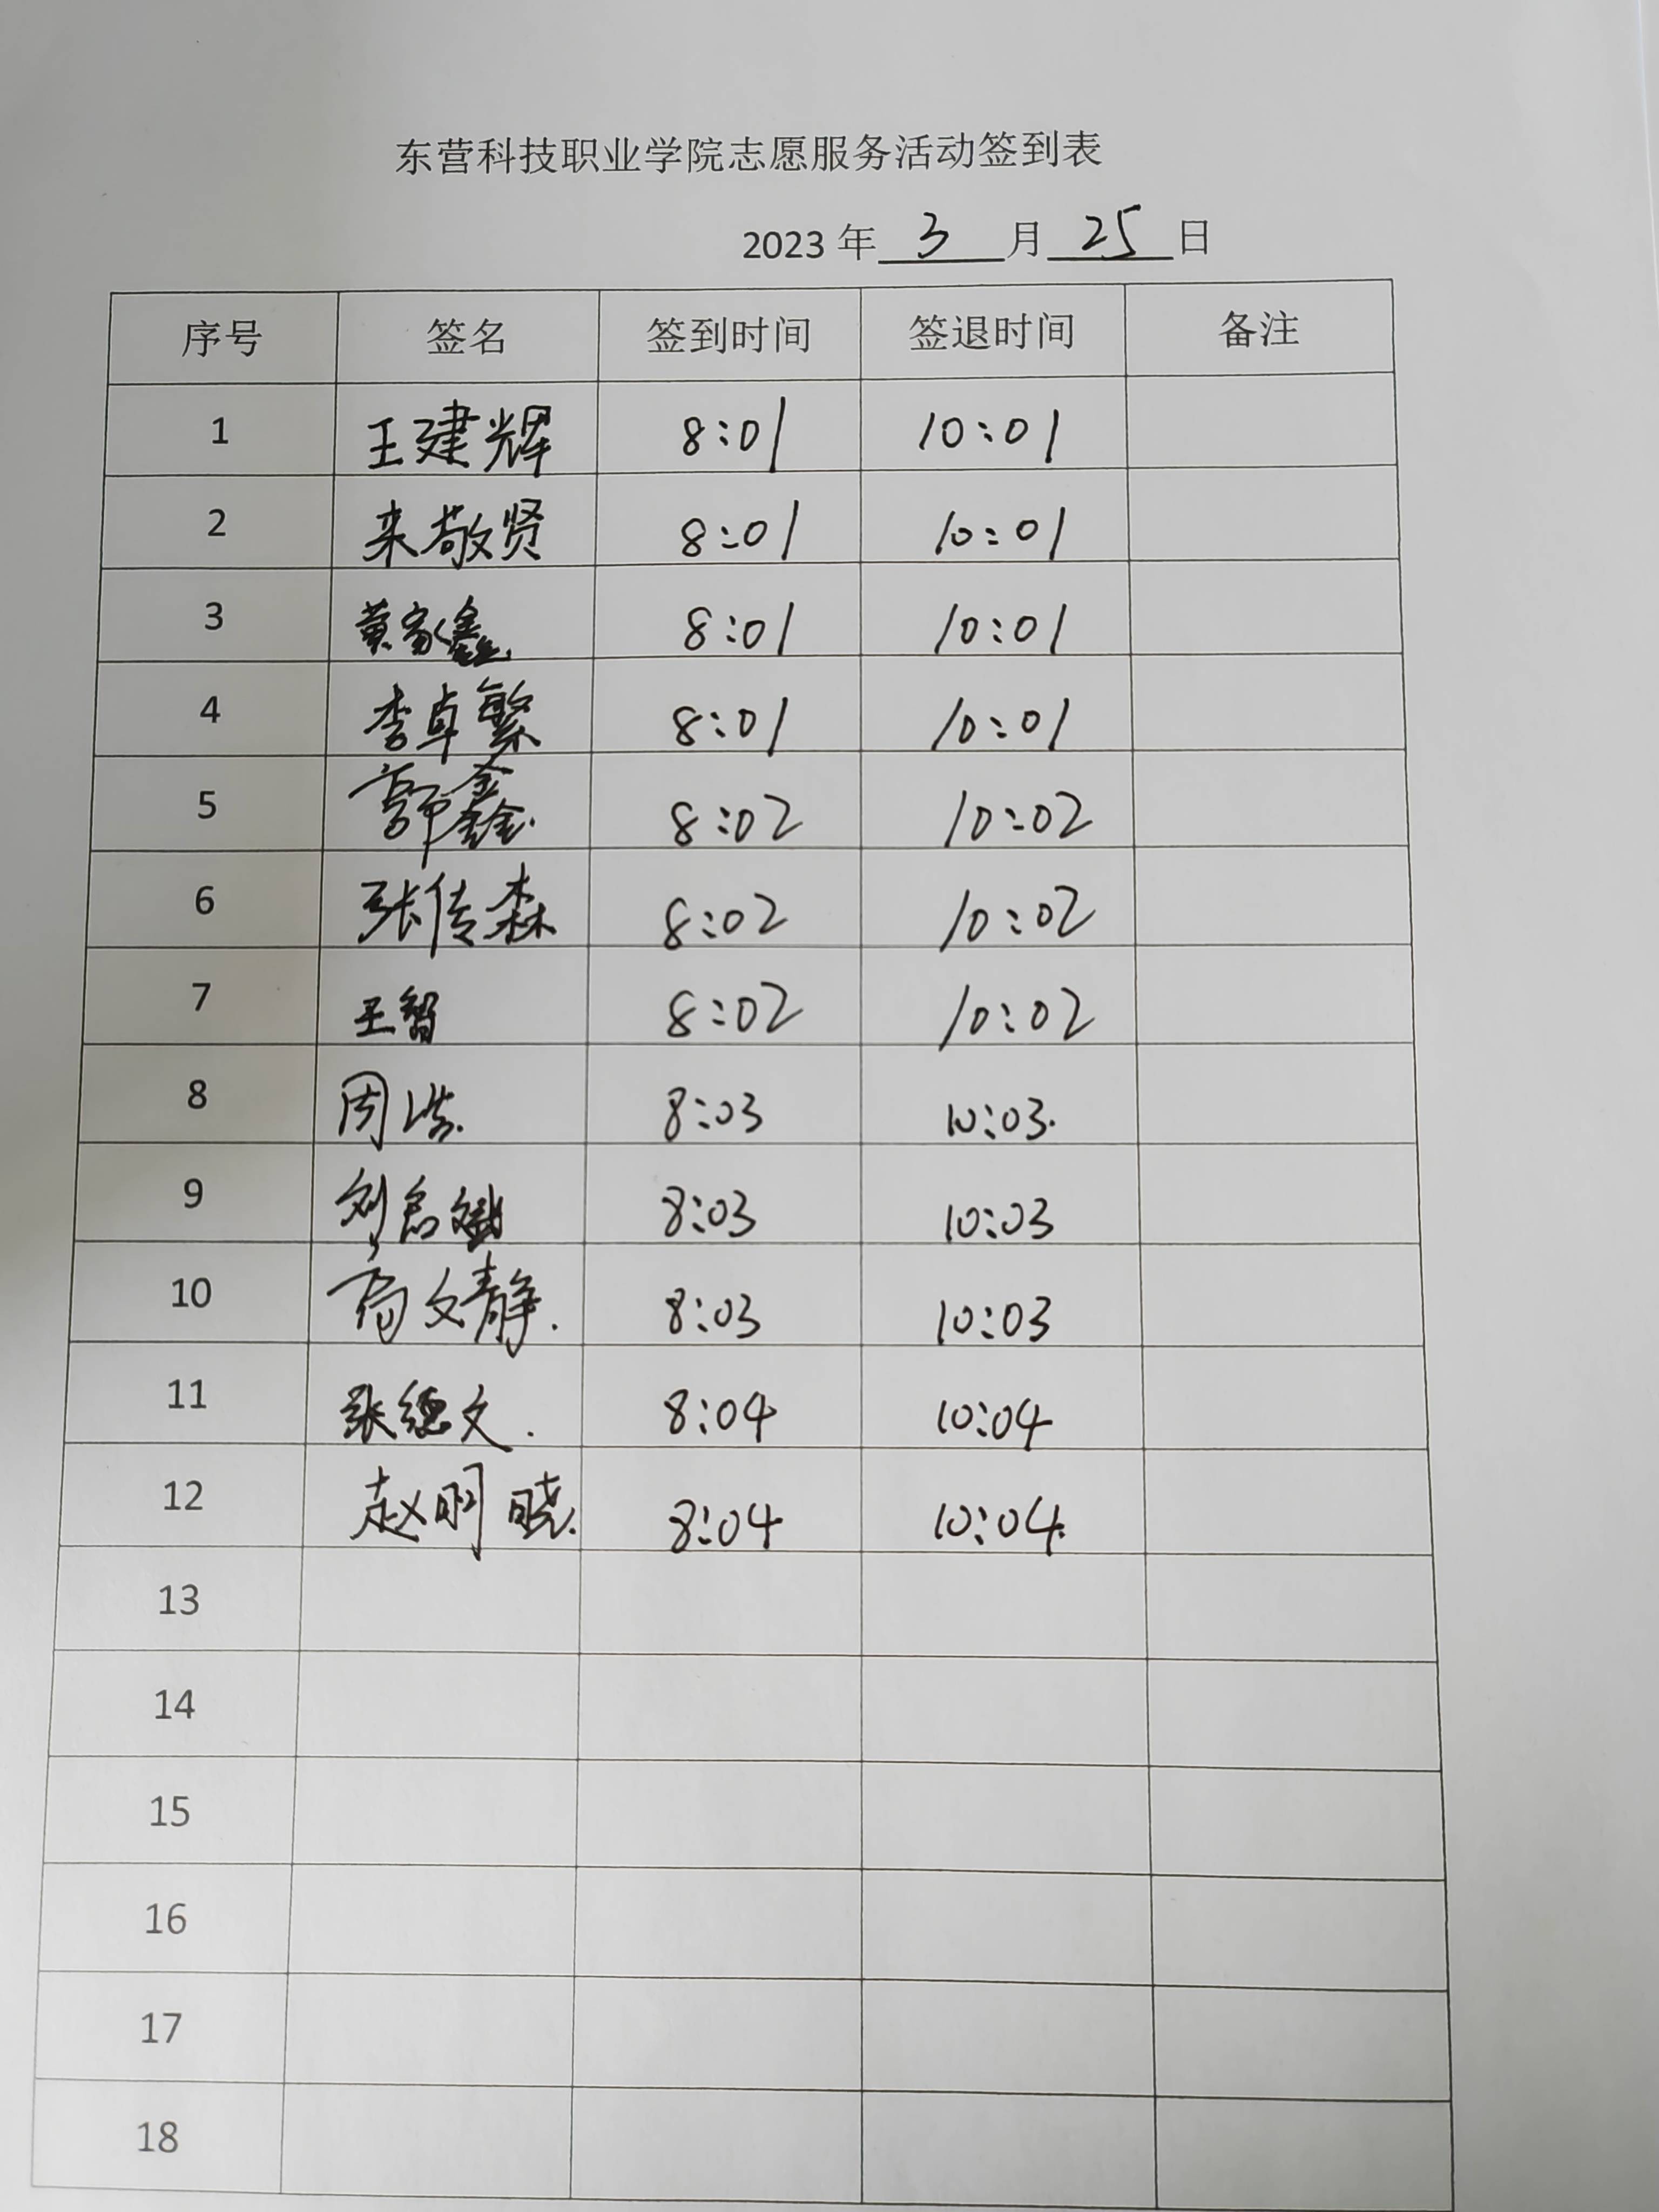 东营科技职业学院志愿服务活动签到表
2023 年 3 月 25 日
序号 签名 签到时间 签退时间 备注
1 王建辉 8:01 10:01
2 来敬贤 8:01 10:01
3 黄家鑫 8:01 10:01
4 李卓繁 8:01 10:01
5 郭鑫 8:02 10:02
6 张传森 8:02 10:02
7 王智 8:02 10:02
8 周浩 8:03 10:03
9 8:03 10:03
10 文静 8:03 10:03
11 张德文 8:04 10:04
12 赵明晓 8:04 10:04
13
14
15
16
17
18